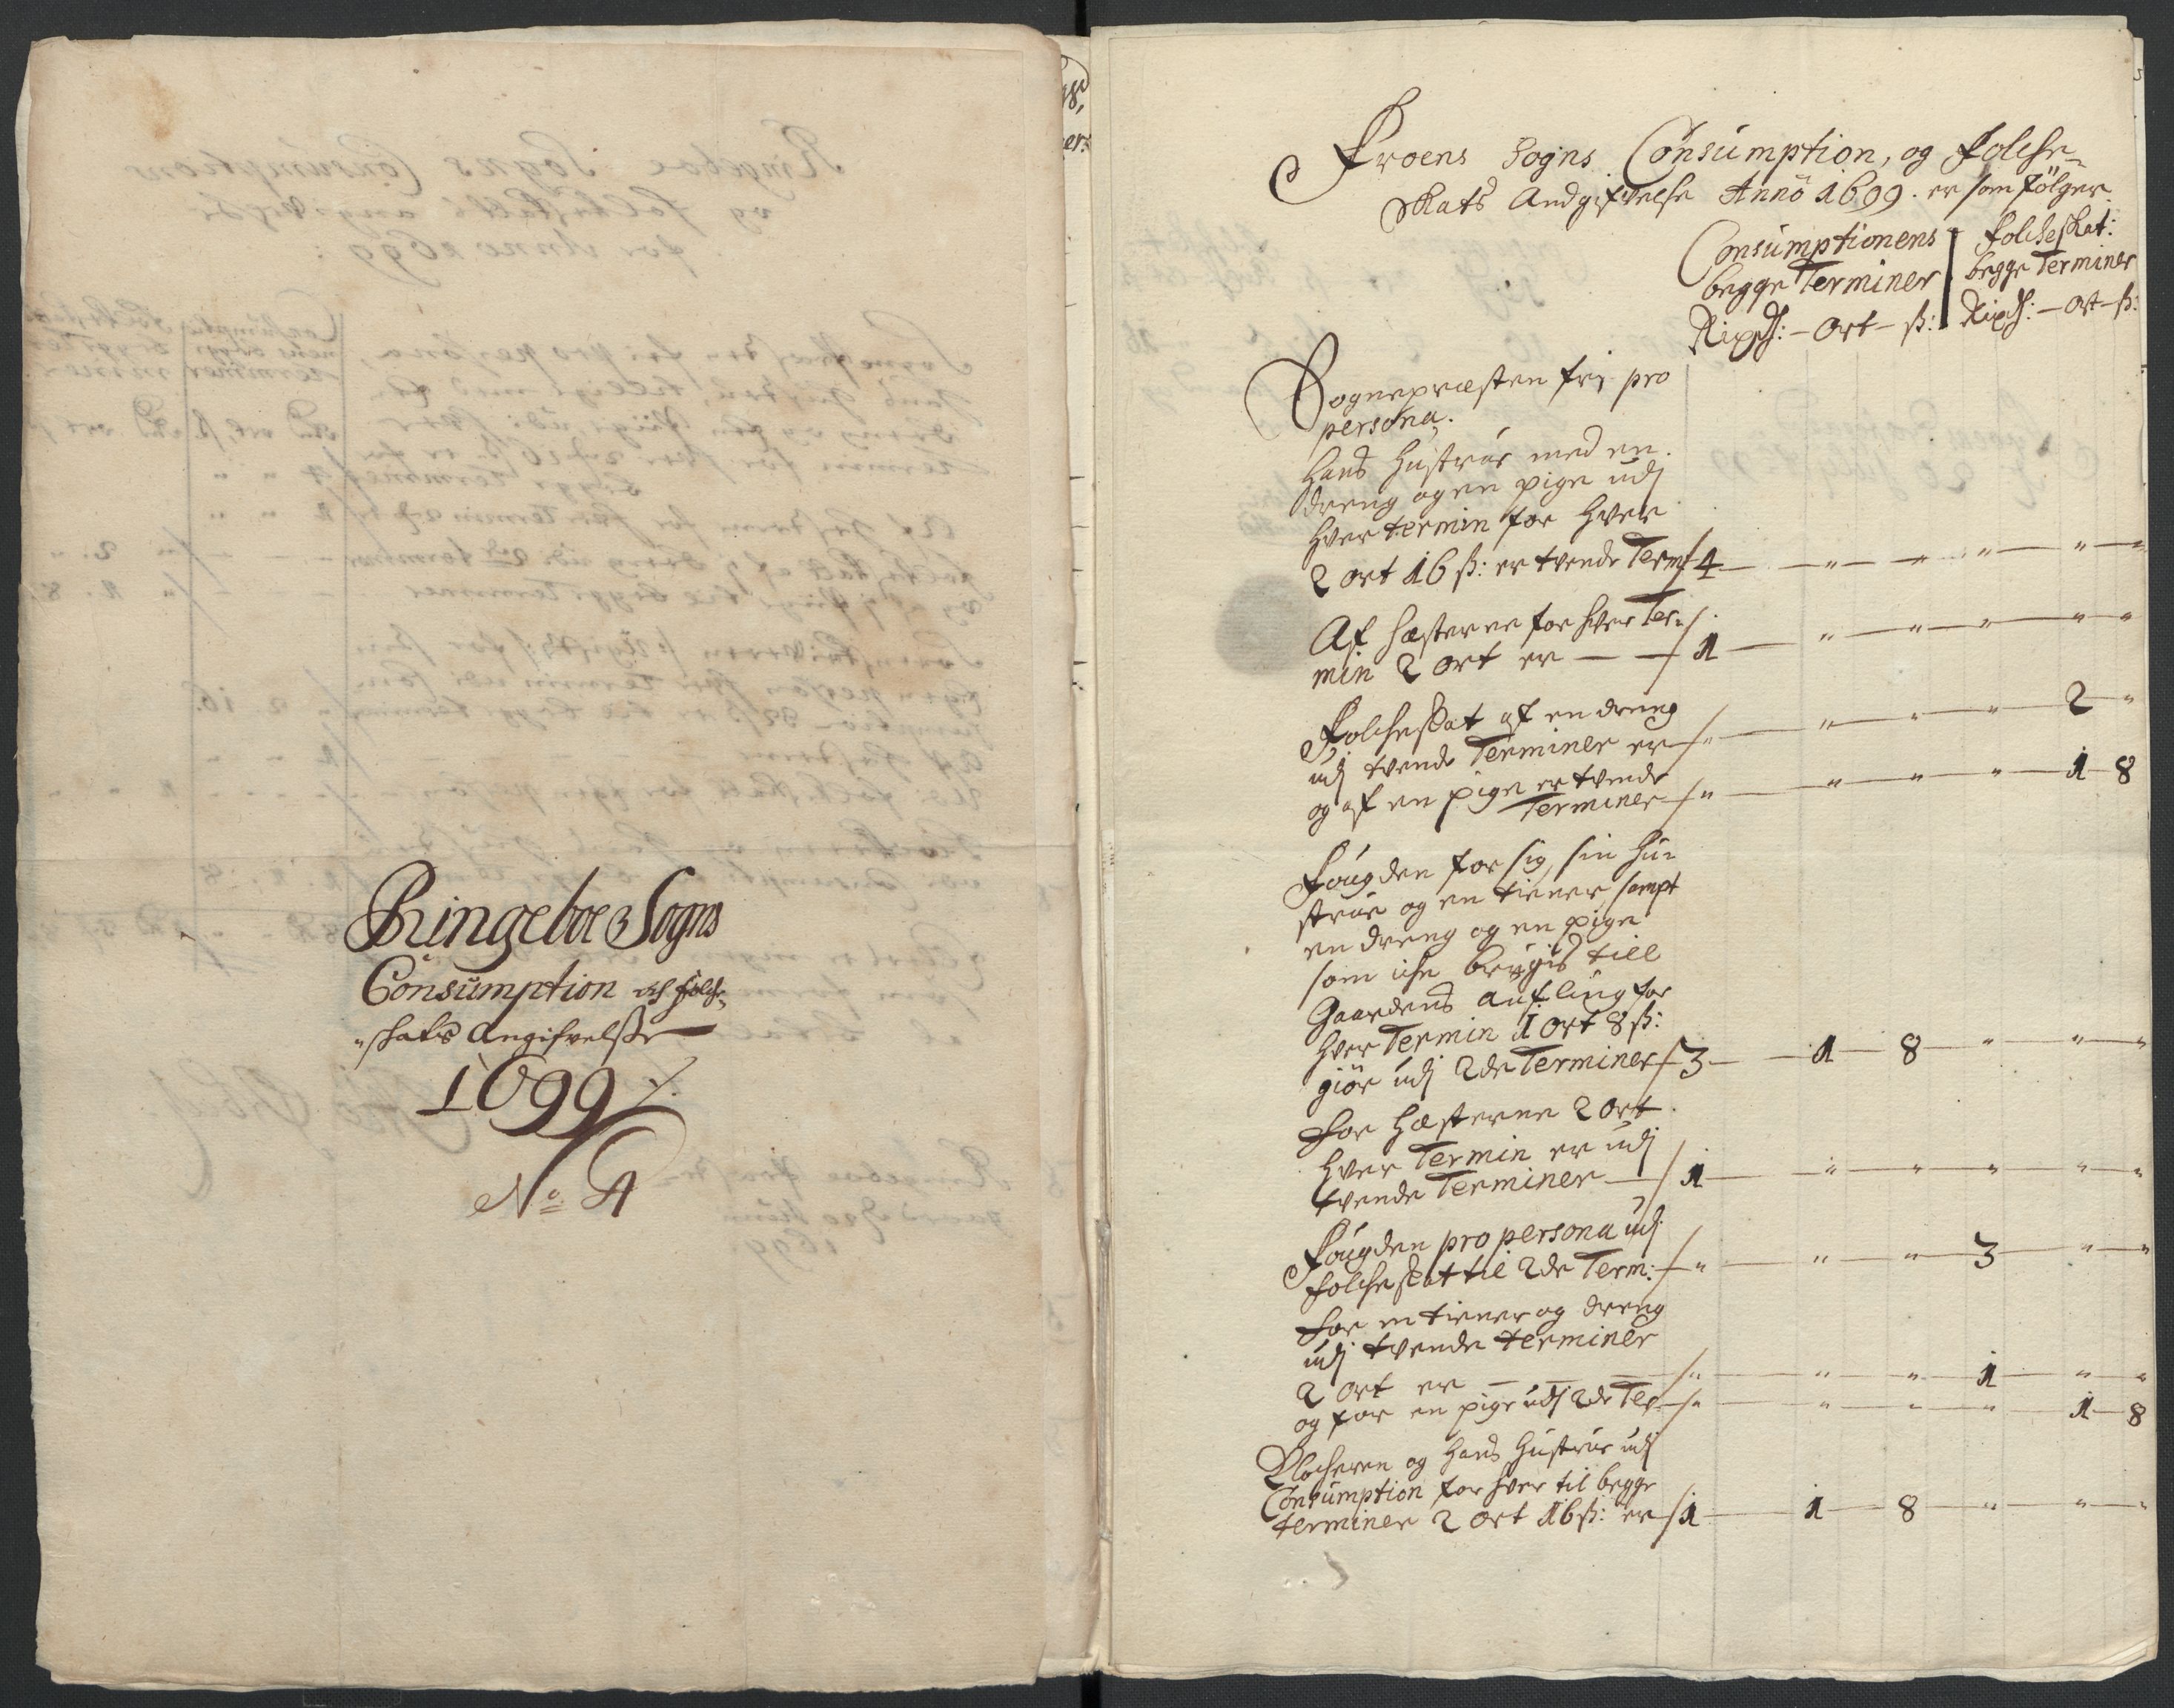 Ringeboe Sogns
Consumption och folche
skats Angifvelße
1699 ⁒
No 4
Froens Sogns Consumption, og Folche-
Skats Andgifvelse Anno 1699. er som fölger
Consumptionens | folcheskat:
begge Terminer | begge Terminer
Rixd: — Ort — ß: | Rixd: — Ort — ß:
Sognepræsten fri pro
persona.
hans hustrue med en
dreng og en pige udj
hver termin for hver
2 ort 16 ß: er tvende Term / 4 — " — " — " — " — "
Af hæsterne for hver Ter-
min 2 ort er — — / 1 — " — " — " — " — "
Folcheskat af en dreng
udj tvende Terminer er / " — " — " — " — 2 — "
og af en pige er tvende
Terminer / " — " — " — " — 1 — 8
Fougden for sig, sin hu-
strue og en tiener, sampt
en dreng og en pige
som iche brugis till
Gaardens aufling for
hver Termin 1 ort 8 ß:
giör udj 2de Terminer / 3 — 1 — 8 — " — " — "
for hæsterne 2 ort
hver Termin er udj
tvende Terminer — / 1 — " — " — " — " — "
Fougden pro persona udj
folcheskat til 2de Term: / " — " — " — 3 — " — "
for en tiener og dreng
udj tvende terminer
2 ort er — — — / " — " — " — 1 — " — "
og for en pige udj 2de Ter / " — " — " — " — 1 — 8
Klocheren og hans hustrue udj
Consumption for hver til begge
terminer 2 ort 16 ß: er / 1 — 1 — 8 — " — " — "